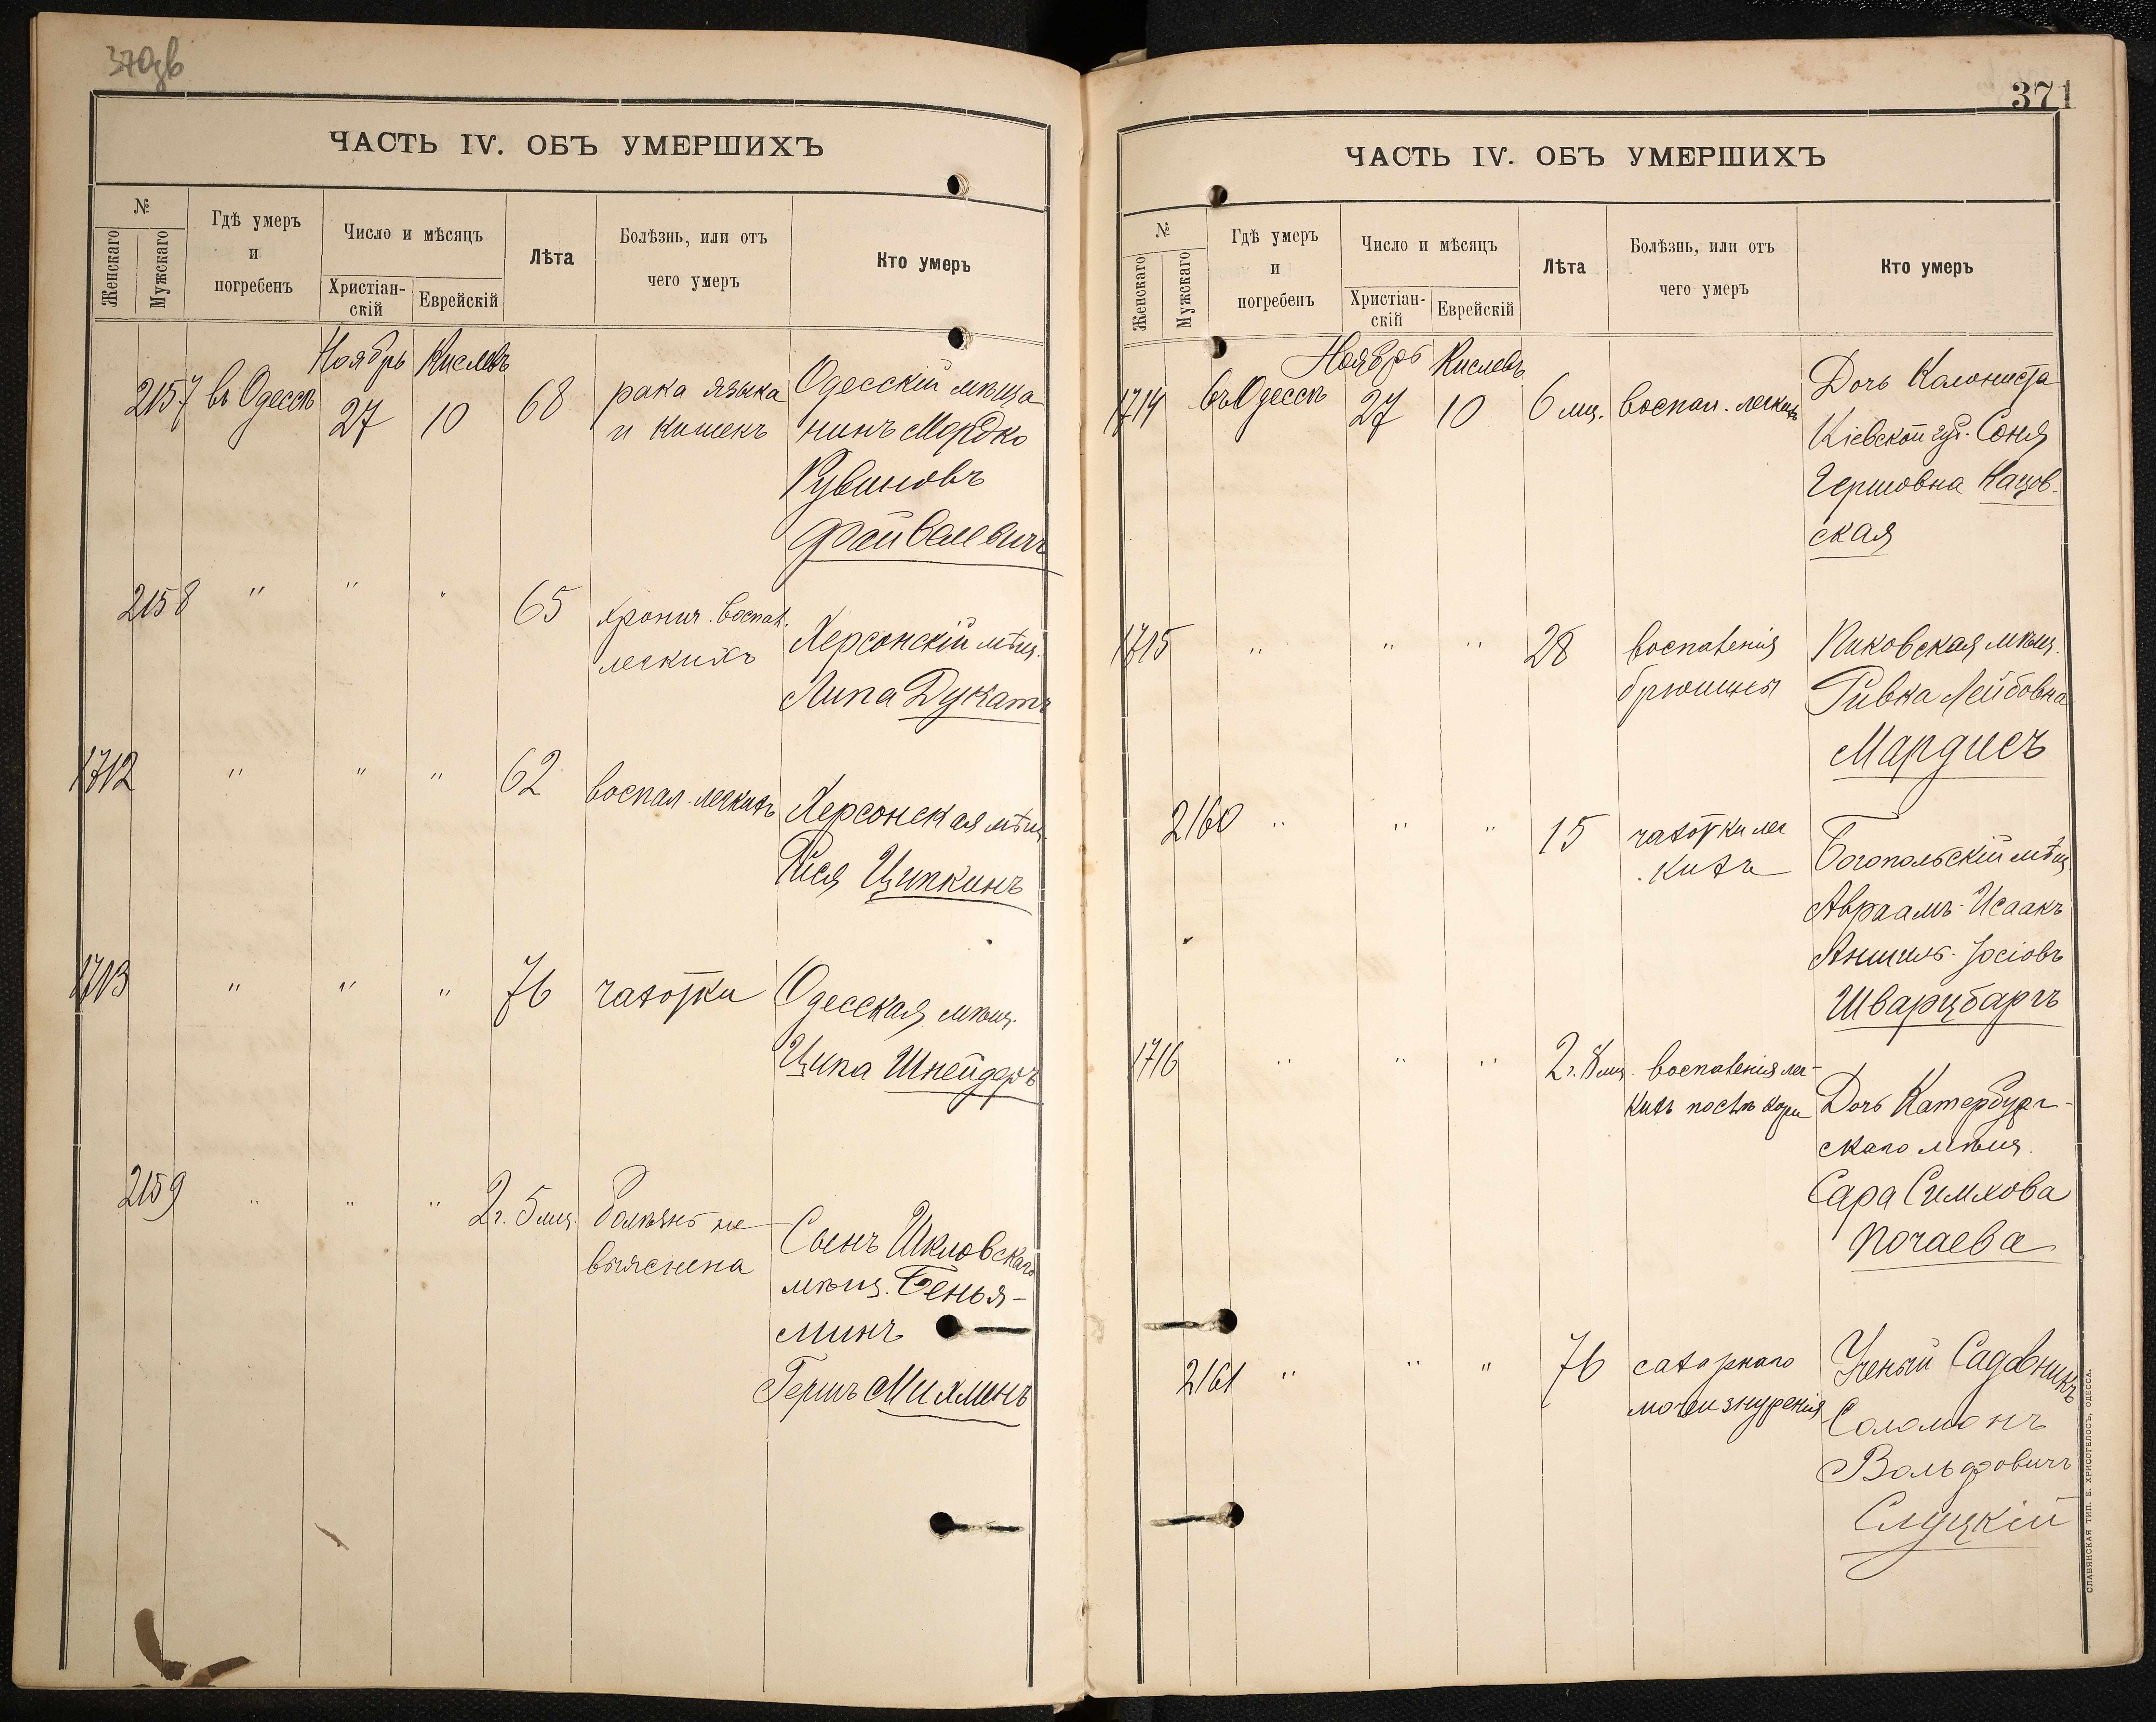 370 об
ЧАСТЬ IV. ОБЪ УМЕРШИХЪ
№
Женскаго
Мужскаго
Гдѣ умеръ
и
погребенъ
Число и мѣсяцъ
Христіан-
скій
Еврейскій
Лѣта
Болѣзнь, или отъ
чего умеръ
Кто умеръ
Ноябрь Кислевъ
2157 въ Одессѣ 27 10 68 рака языка Одесскій мѣща
и кишекъ нинъ Мордко
Рувиновъ
Файвелевичъ
2158 " " " 65 хронич. воспал. Херсонскій мѣщ.
легкихъ Липа Дукатъ
1712 " " " 62 воспал. легкихъ Херсонская мѣщ.
Рися Ципкинъ
1713 " " " 76 чахотки Одесская мѣщ.
Ципа Шнейдеръ
2159 " " " 2 г. 5 мц. болѣзнь не Сынъ Шкловскаго
выяснена мѣщ. Бенья-
минъ
Гершъ Михлинъ
371
ЧАСТЬ IV. ОБЪ УМЕРШИХЪ
№
Женскаго
Мужскаго
Гдѣ умеръ
и
погребенъ
Число и мѣсяцъ
Христіан-
скій
Еврейскій
Лѣта
Болѣзнь, или отъ
чего умеръ
Кто умеръ
Ноябрь Кислевъ
1714 въ Одессѣ 27 10 6 мц. воспал. легкихъ Дочь Колониста
Кіевской губ. Соня
Гершовна
ская
1715 " " " 28 воспаленія Пиковская мѣщ.
брюшины Ривка Лейбовна
Мардисъ
2160 " " " 15 чахотки лег Богопольскій мѣщ.
кихъ Авраамъ-Исаакъ
Аншель-Іосіовъ
Шварцбаргъ
1716 " " " 2 г. 8 мц. воспаленія лег-
кихъ послѣ кори Дочь Катербург-
скаго мѣщ.
Сара Симхова
Почаева
2161 " " " 76 сахарнаго Ученый Садовникъ
мочеизнуренія Соломонъ
Вольфовичъ
Слуцкій
СЛАВЯНСКАЯ ТИП. Е. ХРИСОГЕЛОСЪ, ОДЕССА.